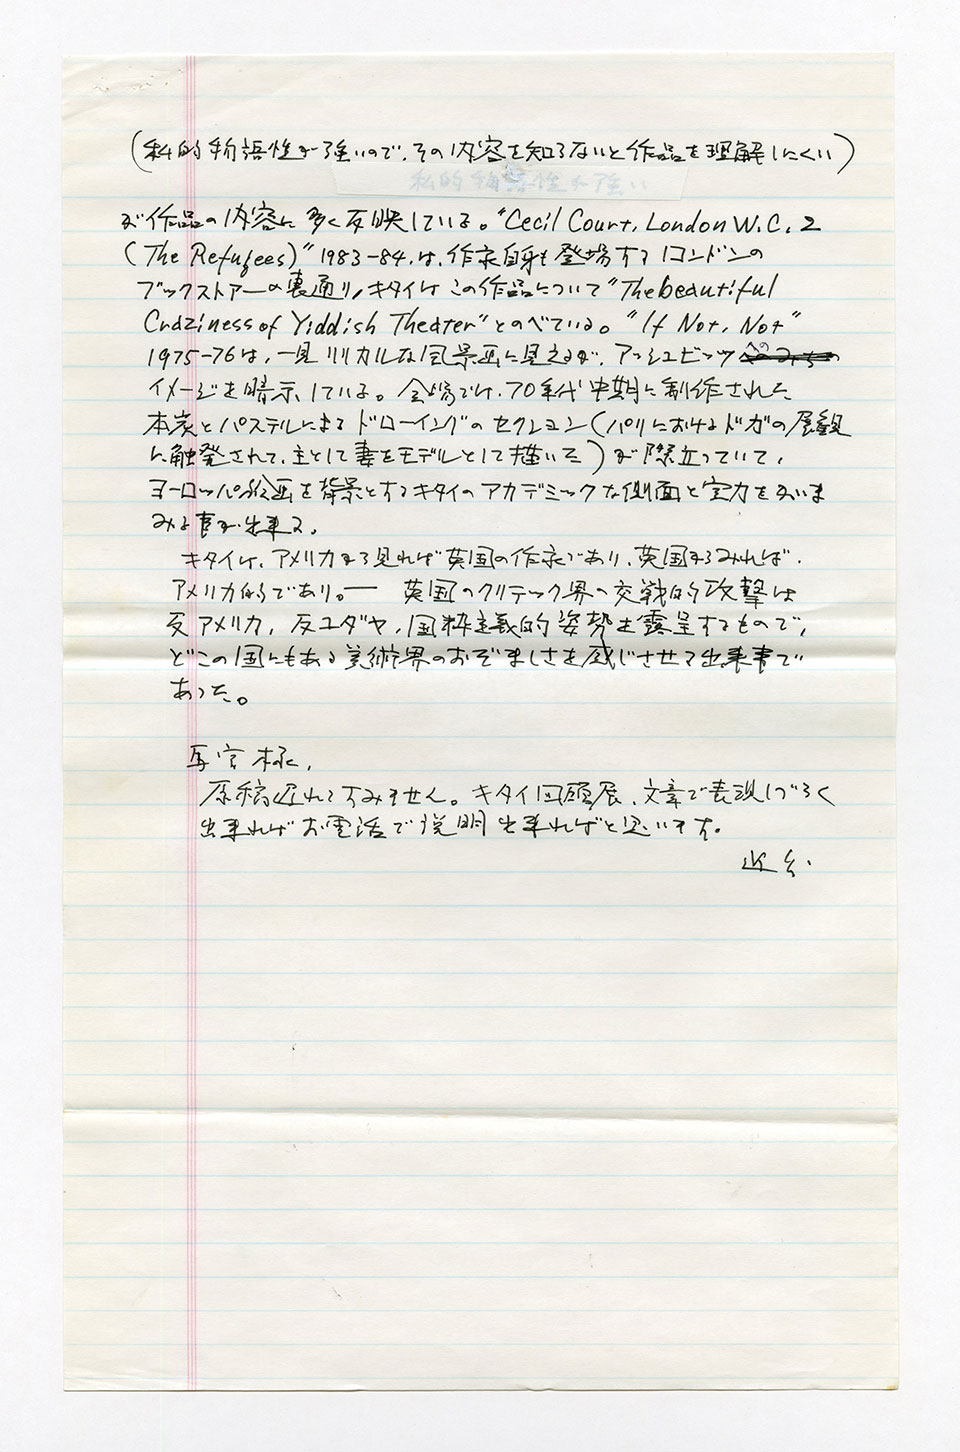 (私的物語性が強いので、その内容を知らないと作品を理解しにくい)
私的物語性が強い
が作品の内容に多く反映している。"Cecil Court, London W.C.2
(The Refugees)" 1983-84、は、作家自身も登場するロンドンの
ブックストアーの裏通り、キタイはこの作品について "The beautiful
Craziness of Yiddish Theater" とのべている。"If Not, Not"
1975-76は、一見リリカルな風景画に見えるが、アッシュビッツへの
イメージを暗示している。会場では、70年代中期に制作された
木炭とパステルによるドローイングのセクション(パリにおけるドガの展観
に触発されて、主として妻をモデルとして描いた)が際立っていて、
ヨーロッパ絵画を背景とするキタイのアカデミックな側面と実力をかいま
みる事が出来る。
キタイは、アメリカから見れば英国の作家であり、英国からみれば、
アメリカ的であり。― 英国のクリテック界の交戦的攻撃は
反アメリカ、反ユダヤ、国粋主義的姿勢を露呈するもので、
どこの国にもある美術界のおぞましさを感じさせる出来事で
あった。
様、
原稿遅れてすみません。キタイ回顧展、文章で表現しづらく
出来ればお電話で説明出来ればと思います。
近